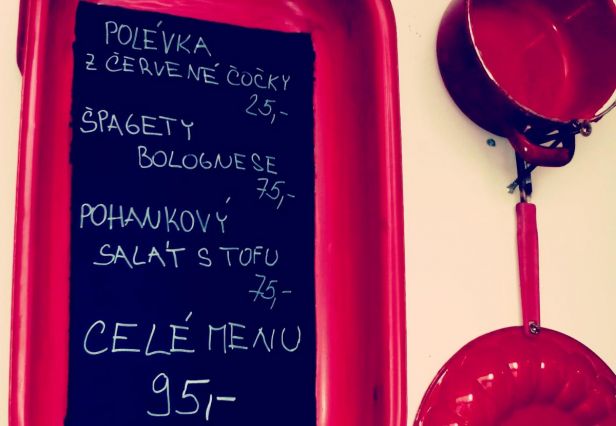 POLÉVKA
Z ČERVENÉ ČOČKY
25,-
ŠPAGETY
BOLOGNESE
75,-
POHANKOVÝ
SALÁT S TOFU
75,-
CELÉ MENU
95,-